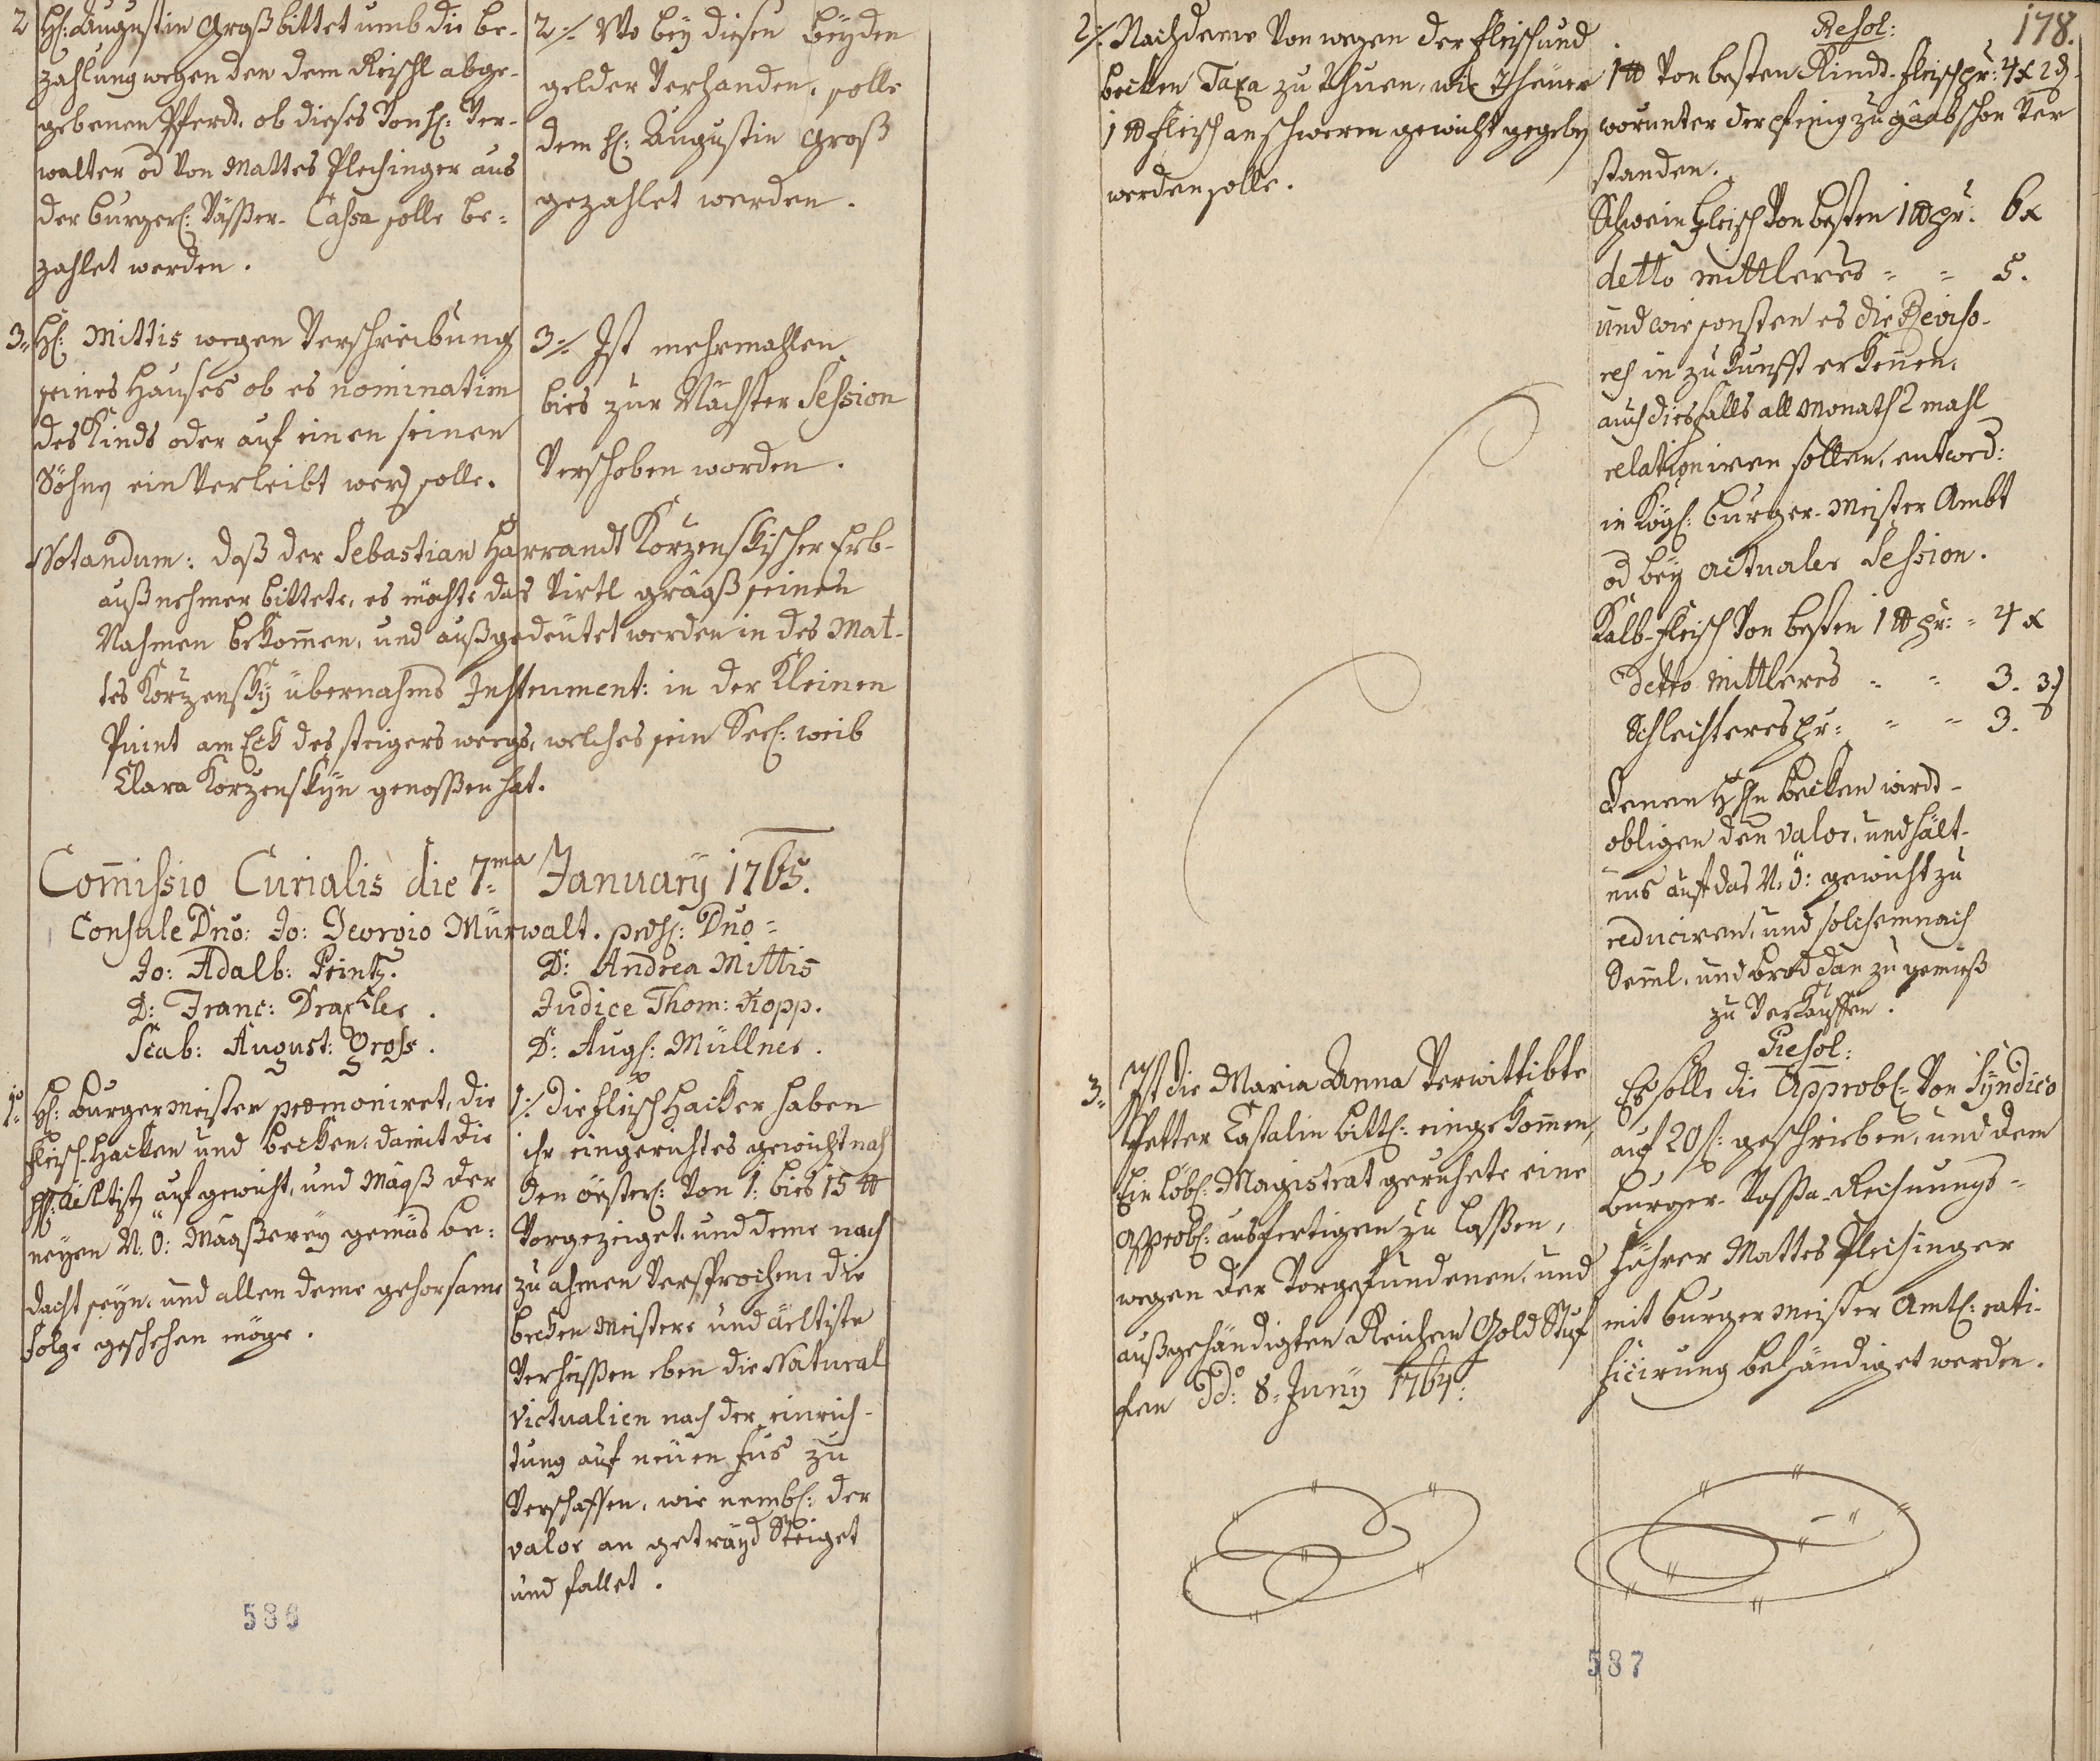 2 H: Augustin Groß bittet umb die be-
zahlung wegen den dem Reischl abge-
gebenen Pferdt. ob dieses von H: Ver-
walter od von Mattes Pleichinger aus
der burgerl: Cassa solle be-
zahlet werden.
2 ⁒ Wo bey diesen beyden
gelder verhanden, solle
dem H: Augustin Groß
gezahlet werden.
3. H: Mittis wegen verschreibung
seines Hauses ob es nominatim
des Kinds oder auf einen seinen
Söhne ein verleibt werd solle.
3 ⁒ Ist mehrmahlen
bies zur Nächster Session
verschoben worden.
Notandum: daß der Sebastian Harrandt Korzenskischer Erb-
außnehmer bittete, es möchte das virtl graaß seinen
Nahmen bekom̄en, und außgedeutet werden in des Mat-
tes Korzensky übernahms Instrument: in der Kleinen
Point am Eck des steigers weegs, welches sein Seel: weib
Clara Korzenskyn genossen hat.
Com̄issio Curialis die 7ma January 1765.
Consule Dno: Jo: Georgio Mürwalt. Dno:
Jo: Adalb: Printz.
D: Andrea Mittis
D: Franc: Draxler.
Judice Thom: Kopp.
Scab: August: Gross.
D: Aug: Müllner.
1mo H: burgermeister præmoniret, die
fleisch-Hacker und becken, damit die
auf gewicht, und Maaß der
neyen N: Ö: Maaßerey gemäs be-
dacht seyn, und allen deme gehorsame
folge geschehen möge.
1 ⁒ Die fleisch Hacker haben
ihr eingerichtes gewicht nach
den öester: von 1: bies 15 ℔
vorgezeiget, und deme nach
zu ahmen versprochen, die
becken Meistere und ältiste
verheissen eben die Natural
victualien nach der einrich-
tung auf neuen fus zu
verschaffen, wie nembl: der
valor an getrayd steiget
und fallet.
586
178.
2 ⁒ Nachdeme von wegen der fleisch und
becken Taxa zu thuen, wie theuer
1 ℔ fleisch an schweren gewicht gegeben
werden solle.
Resol:
1 ℔ von besten Rindt-fleisch pr: 4 x 2 ₰.
worunter der pfenig zu gaab schon ver
standen.
Schwein fleisch von besten 1 ℔ pr: 6 x
detto mittleres " " 5.
und wie sonsten es die Reviso-
res in zukunfft erkenen,
auch diesfalls all Monath 2 mahl
relationiren sollen, entwed:
in Kögl: burger-Meister Ambt
od bey actualer Session.
Kalb-fleisch von besten 1 ℔ pr: " 4 x
Detto mittleres " " 3. 3 ₰
Schlechteres pr: " " 3.
Denen H: becken wirdt-
obligen den valor, und hält-
nus auf das N: Ö: gewicht zu
reduciren, und solchemnach
Sem̄l, und brod dan zu gemeß
zu verkauffen.
3. Ist die Maria Anna verwittibte
Petter Castalin bittl: eingekom̄en,
Ein löbl: Magistrat geruhete eine
Approb: ausfertigen zu lassen,
wegen der vorgefundenen, und
außgehändigten Reichen Gold Stuf
fen Dd: 8. Juny 1764:
Resol:
Es solle die Approb: von Syndico
auf 20 f: geschrieben, und dem
burger-Cassa-Rechnungs-
führer Mattes Pleichinger
mit burgermeister Ambt: rati-
ficirung behändiget werden.
587